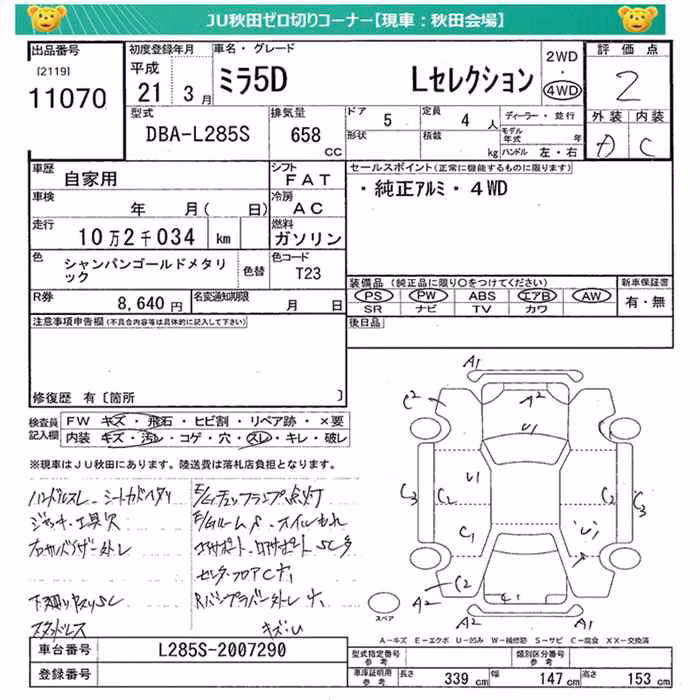 JU秋田ゼロ切りコーナー【現車：秋田会場】
出品番号 初度登録年月 車名・グレード 2WD・4WD 評価点
[2119] 11070 平成 21 3月 ミラ5D Lセレクション 2
外装 内装
A C
型式 排気量 ドア 5 定員 4人 ディーラー・並行
DBA-L285S 658 CC 形状 積載 kg モデル年式 年
ハンドル 左・右
車歴 自家用 シフト FAT セールスポイント(正常に機能するものに限ります)
車検 年 月( 日) 冷房 AC ・純正アルミ・4WD
走行 10万2千034 km 燃料 ガソリン
色 シャンパンゴールドメタリック 色替 色コード T23
装備品(純正品に限り○をつけてください) 新車保証書
PS PW ABS エアB AW 有・無
SR ナビ TV カワ
R券 8,640円 名変通知期限 月 日
注意事項申告欄(不具合内容等は具体的に記入して下さい) 後日品
修復歴 有〔箇所 〕
検査員記入欄 FW キズ・飛石・ヒビ割・リペア跡・×要
内装 キズ・汚レ・コゲ・穴・スレ・キレ・破レ
※現車はJU秋田にあります。陸送費は落札店負担となります。
ハンドルスレ シートカドヘタリ
ジャッキ・工具欠
下廻りサビSC
スタッドレス
キズ・U
A1
C2 A2
U1
U1
C3 C2 C2 C3
C1 U1
A2 C2 A2
A2 A1
スペア
A－キズ E－エクボ U－凹み W－補修跡 S－サビ C－腐食 XX－交換済
車台番号 L285S-2007290 型式指定番号 参考 類別区分番号 参考
登録番号 車庫証明用 参考 長さ 339 cm 幅 147 cm 高さ 153 cm